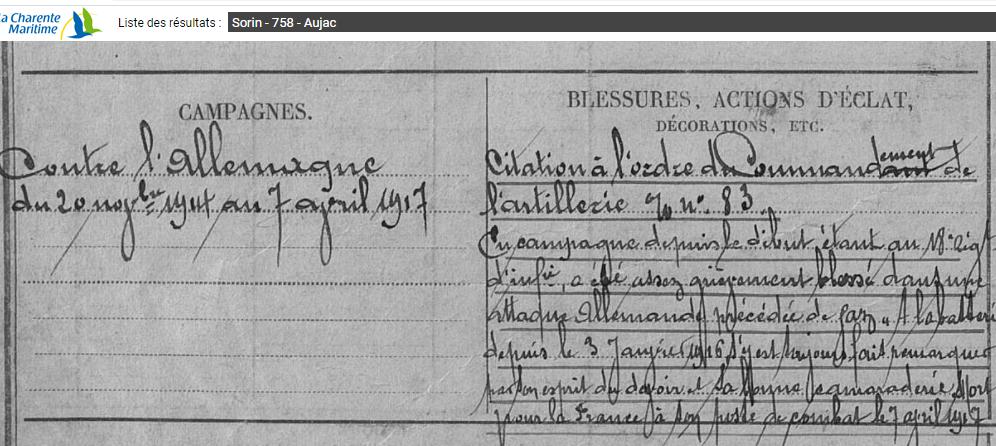 La Charente
Maritime
Liste des résultats : Sorin - 758 - Aujac
CAMPAGNES.
Contre l'Allemagne
du 20 novbre 1914 au 7 april 1917
BLESSURES, ACTIONS D'ÉCLAT,
DÉCORATIONS, ETC.
Citation à l'ordre du Commandement de
l'artillerie n° 83.
En campagne depuis le début étant au 18e Régt
d'infie, a été assez grièvement blessé dans une
attaque Allemande précédée de gaz. A la batterie
depuis le 3 Janvier 1916, s'y est toujours fait remarquer
par son esprit du devoir et sa bonne camaraderie. Mort
pour la France à son poste de combat le 7 april 1917